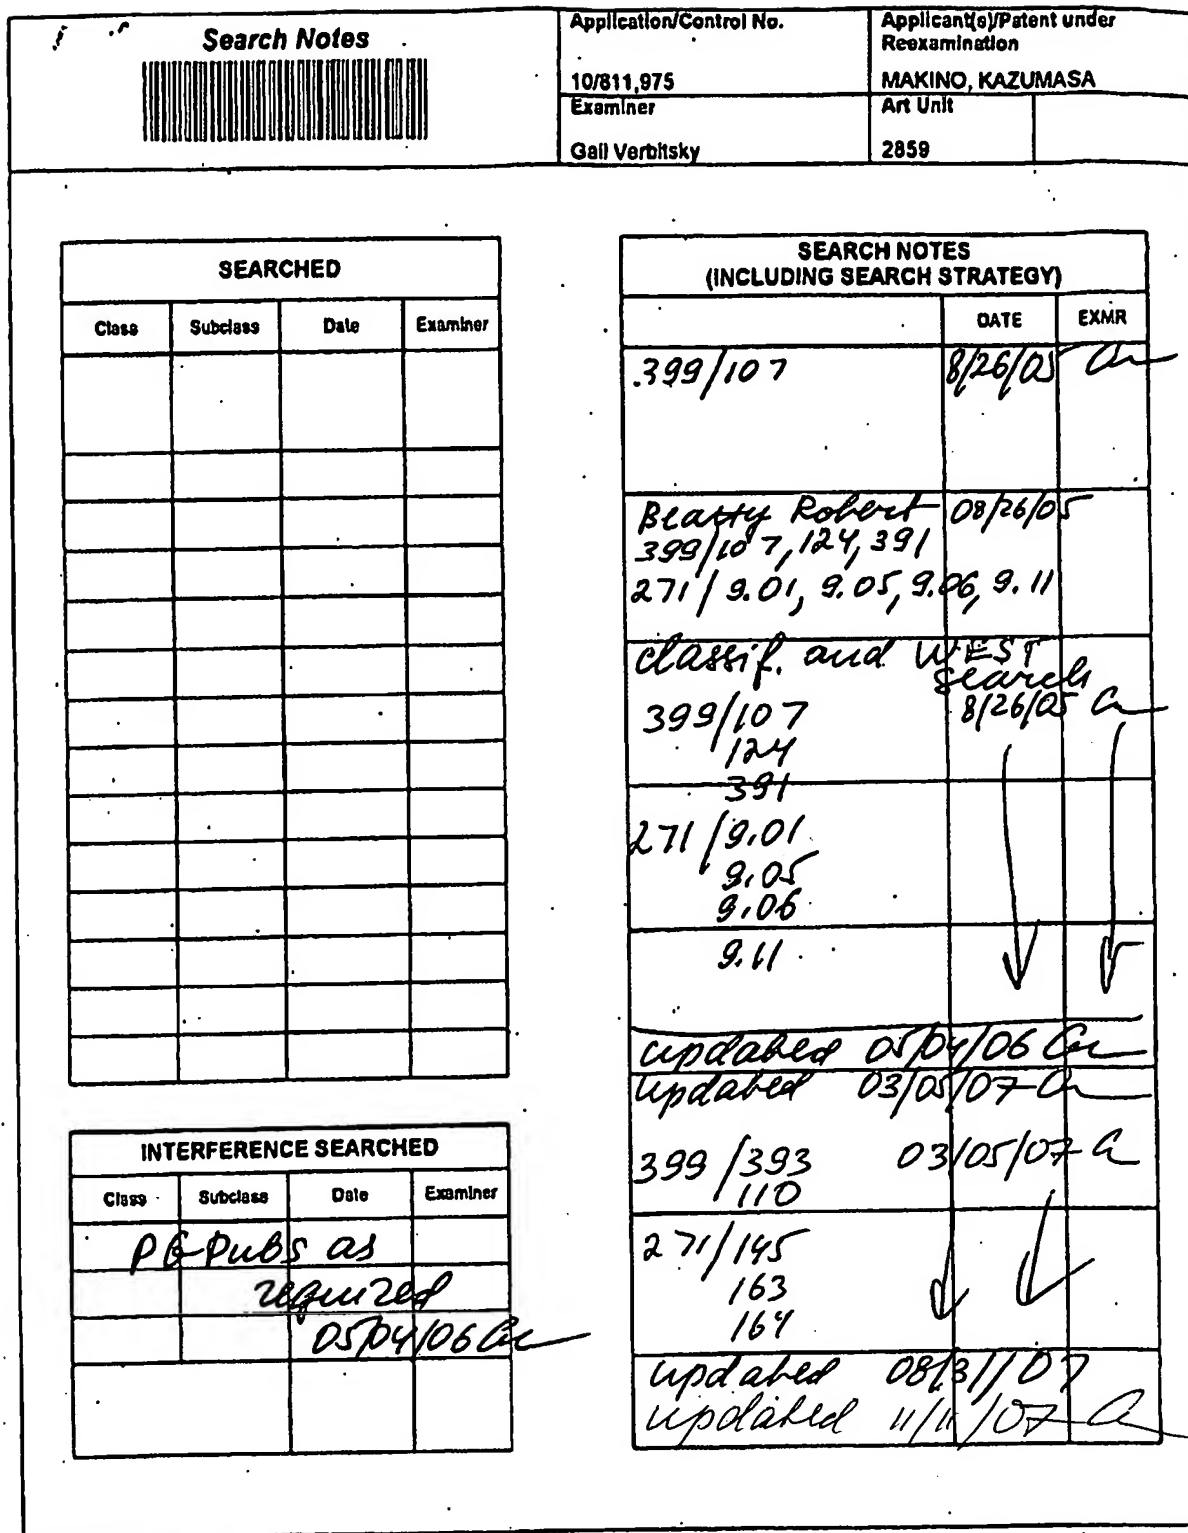 Search Notes
Application/Control No.
10/811,975
Applicant(s)/Patent under
Reexamination
MAKINO, KAZUMASA
Examiner
Gail Verbitsky
Art Unit
2859
SEARCHED
Class Subclass Date Examiner
INTERFERENCE SEARCHED
Class Subclass Date Examiner
PG-Pubs as
required
05/04/06
SEARCH NOTES
(INCLUDING SEARCH STRATEGY)
DATE EXMR
399/107 8/26/05
Beatty Robert 08/26/05
399/107, 124, 391
271/9.01, 9.05, 9.06, 9.11
classif. and WEST
search
399/107 8/26/05
124
391
271/9.01
9.05
9.06
9.11
updated 05/04/06
updated 03/05/07
399/393 03/05/07
110
271/145
163
164
updated 08/31/07
updated 11/11/07